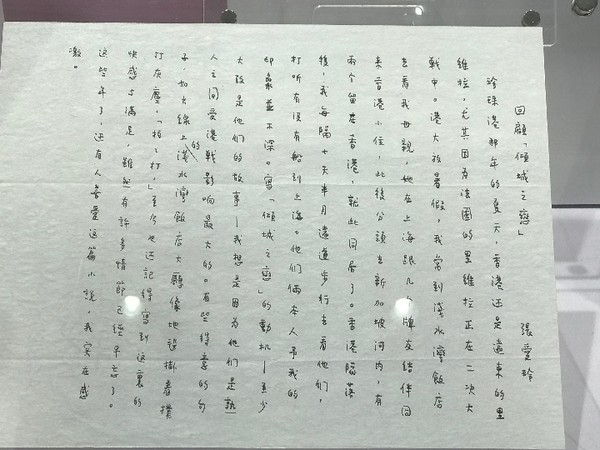 回顧「傾城之戀」　張愛玲
珍珠港那年的夏天，香港还是遠東的里
維拉，尤其因为法國的里維拉正在二次大
戰中。港大放暑假，我常到淺水灣飯店
去看我母親，她在上海跟几个牌友結伴同
来香港小住，此後分頭去新加坡河內，有
兩个留在香港，就此同居了。香港陷落
後，我每隔十天半月遠道步行去看他們，
打听有没有船到上海。他們倆本人予我的
印象並不深。寫「傾城之戀」的動机—至少
大致是他們的故事—我想是因为他們是熟
人之间受港戰影响最大的。有些得意的句
子，如火線上的淺水灣飯店大廳像地毯掛着撲
打灰塵，「拍々打々」，至今也还記得寫到这裏的
快感与滿足，雖然有許多情節已經早忘了。
这些年了，还有人喜愛这篇小說，我实在感
激。